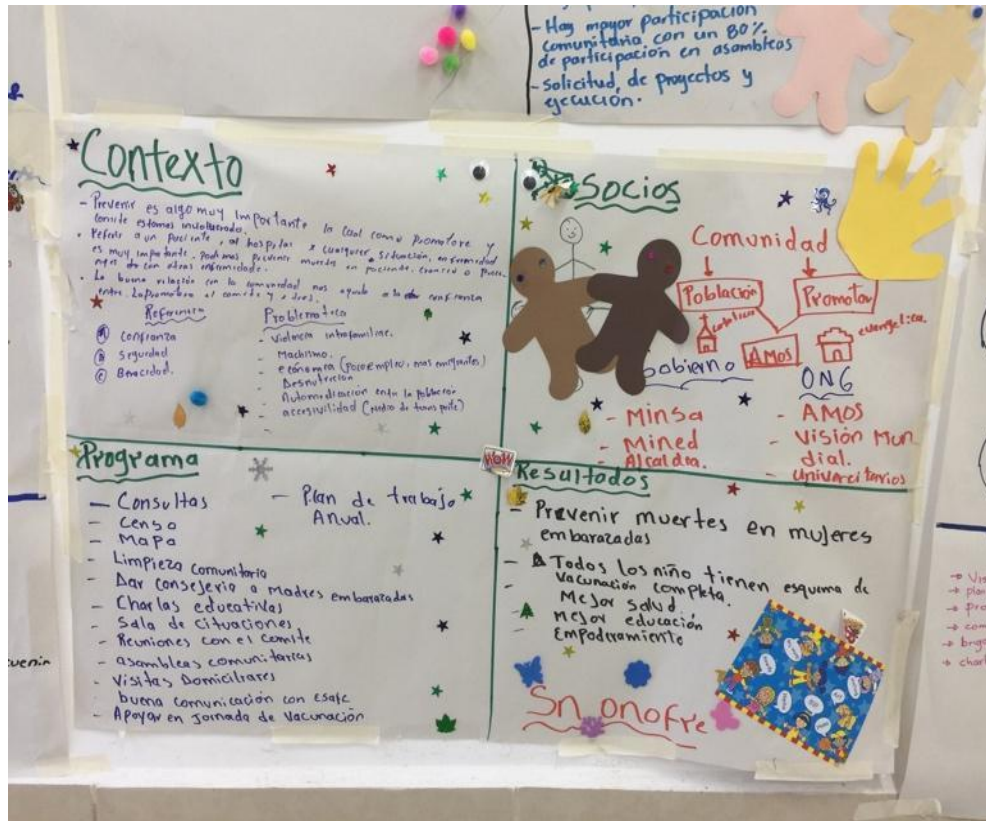 - Hay mayor participación
comunitaria con un 80%
de participación en asambleas
- Solicitud de proyectos y
ejecución.
Contexto
- Prevenir es algo muy importante la cual como promotore y
comite estamos involucrado.
- Referir a un paciente, al hospital x cualquier situación, enfermedad
es muy importante. podemos prevenir muertes en paciente
con otras enfermedade.
- La buena relación con la comunidad nos ayuda a la confianza
entre. La promotora el comite y otros.
Referencia
A confianza
B Seguridad
C Beracidad.
Problematica
- Violencia intrafamiliar.
- Machismo.
- economia (poco empleo, mas emigrantes)
- Desnutrición
- Automedicación entre la población
- accesivilidad (medio de transporte)
-
Socios
Comunidad
Población
Promotor
catolica
evangelica.
AMOS
obierno
- Minsa
- Mined
- Alcaldia.
ONG
- AMOS
- Visión Mun
dial.
- Univercitarios
Programa
- Consultas
- Censo
- Mapa
- Limpieza comunitaria
- Dar consejeria a Madres embarazadas
- Charlas educativas
- Sala de cituaciones
- Reuniones con el comite
- asambleas comunitarias
- Visitas Domiciliares
- buena comunicación con Esafc
- Apoyar en Jornada de Vacunación
- Plan de trabajo
Anual.
WOW
Resultados
- Prevenir muertes en mujeres
embarazadas
- Todos los niño tienen esquema de
Vacunación completa.
- Mejor salud.
- Mejor educación
- Empoderamiento
Sn onofre
uenir